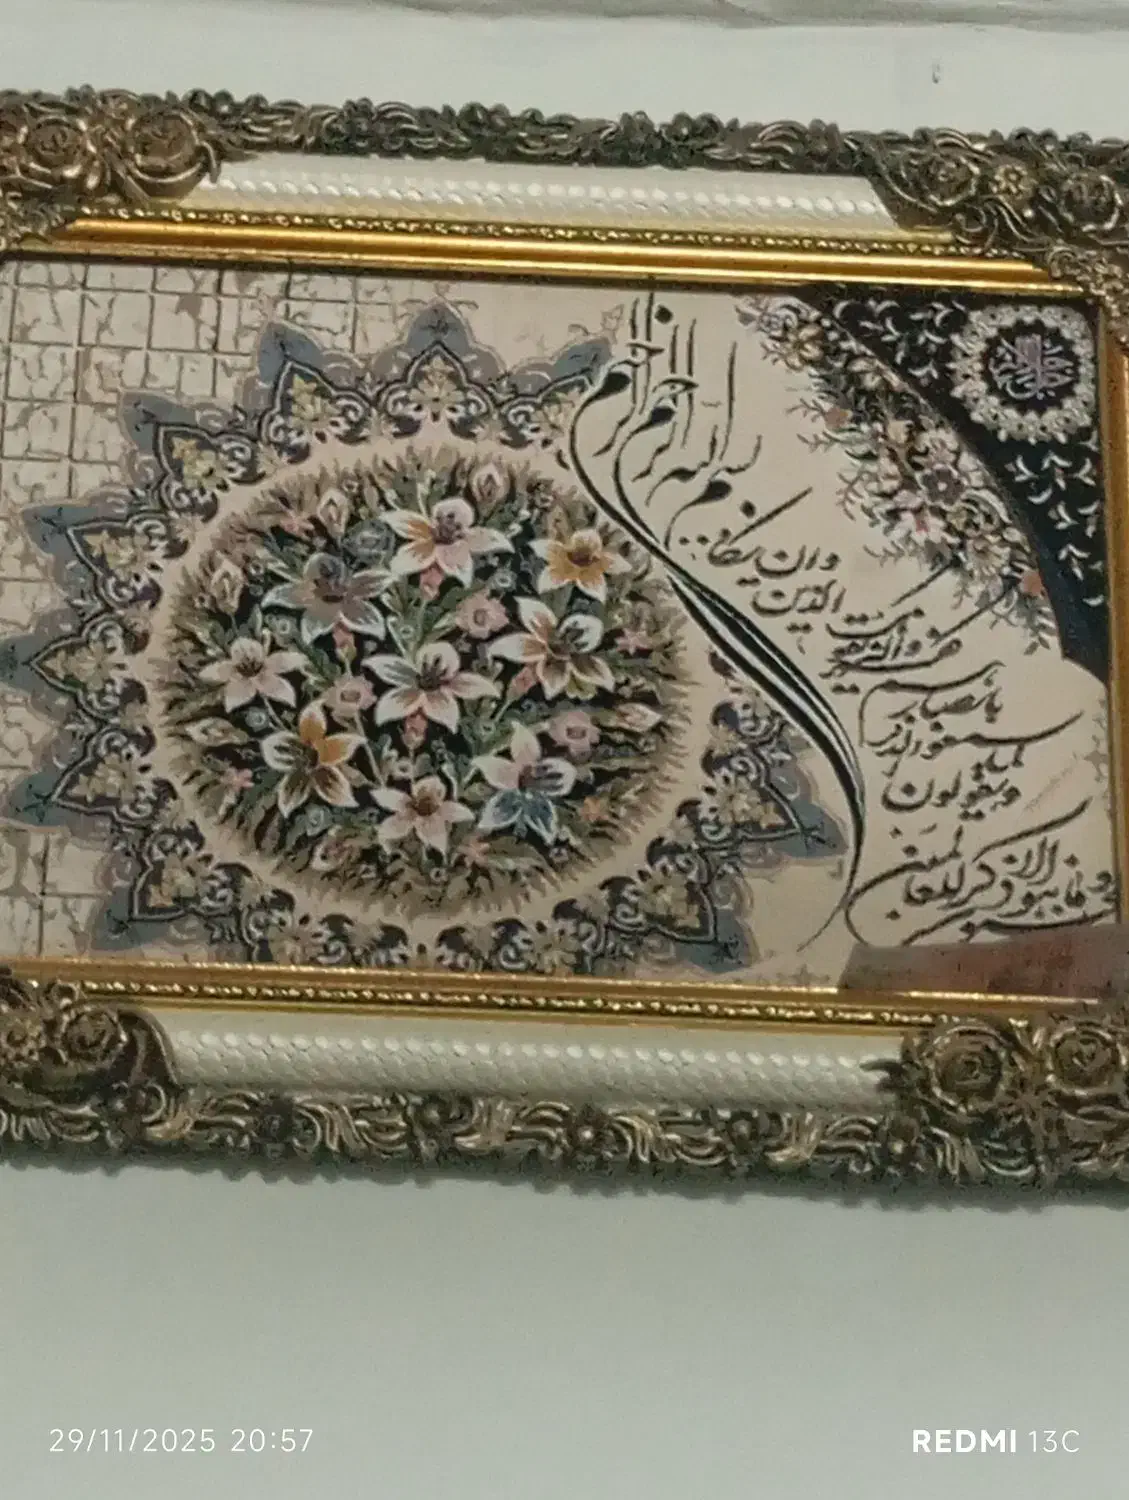 بسم الله الرحمن الرحیم
وان یکاد
الذین
کفروا لیزلقونک
بابصارهم
لما سمعوا الذکر
ویقولون
انه لمجنون
وما هو الا ذکر للعالمین
29/11/2025 20:57
REDMI 13C